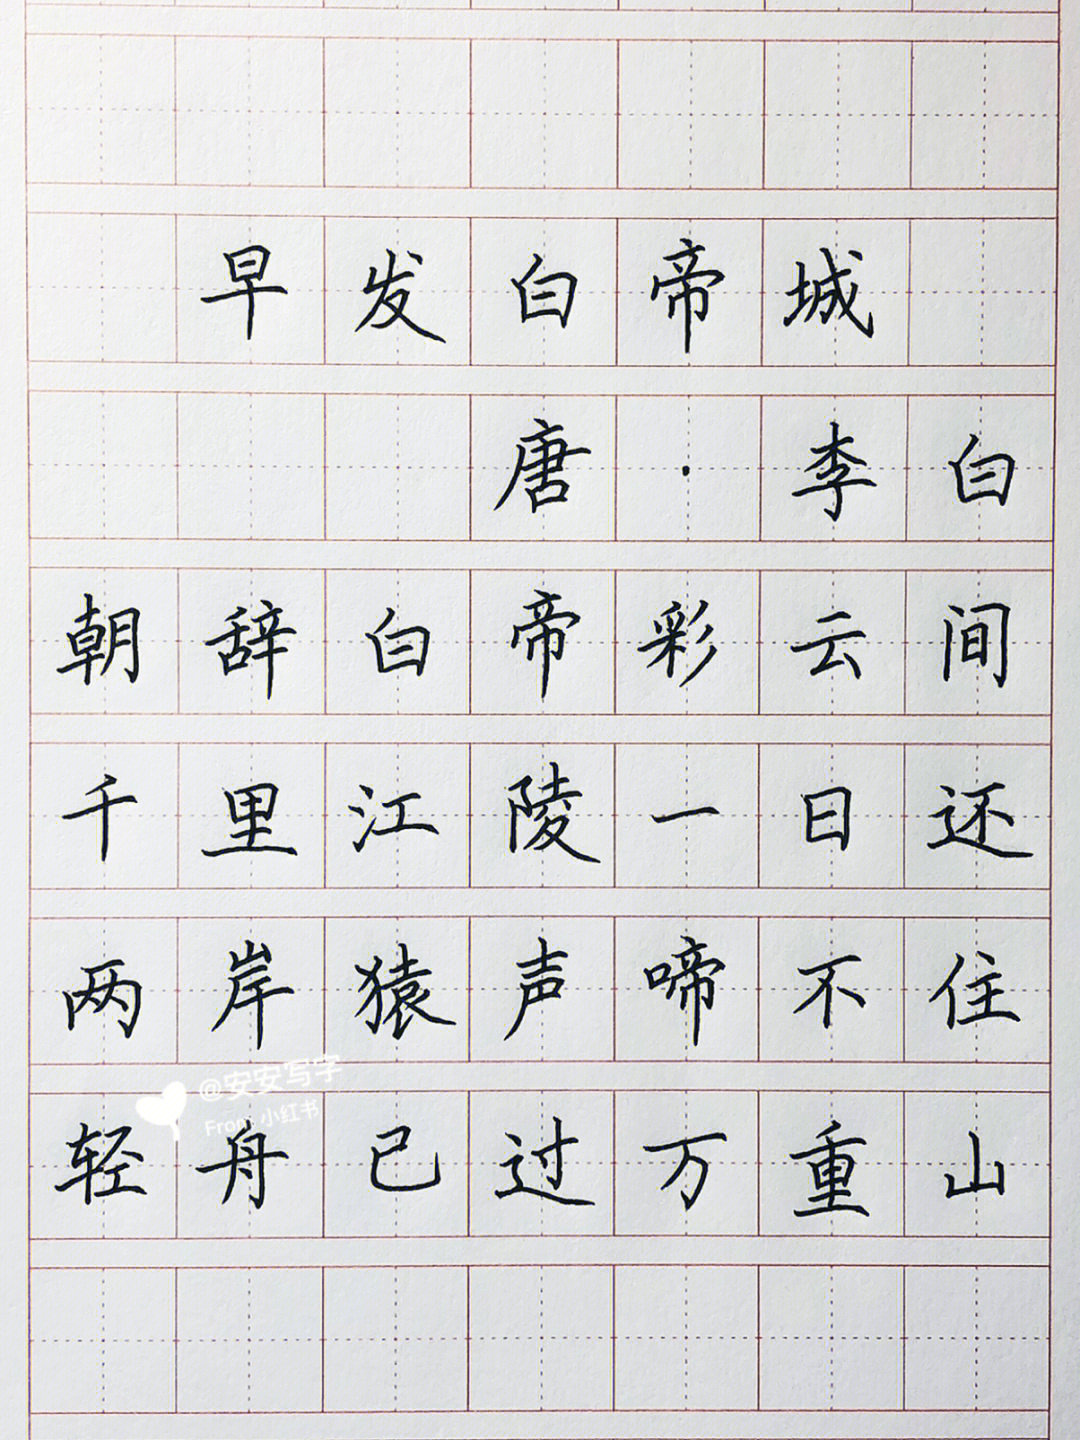 早发白帝城
唐·李白
朝辞白帝彩云间
千里江陵一日还
两岸猿声啼不住
@安安写字
From 小红书
轻舟已过万重山